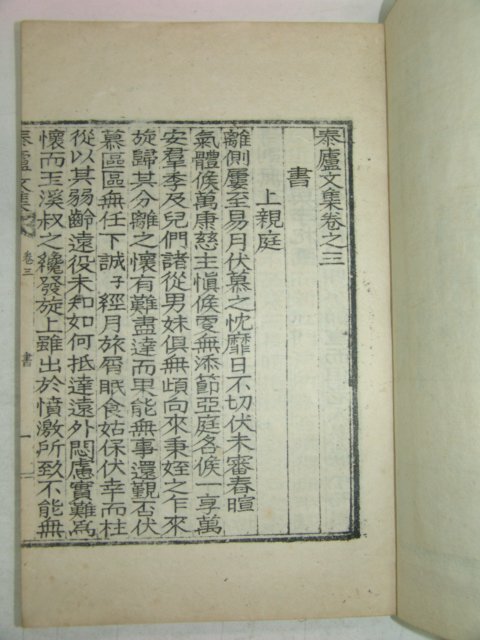 泰廬文集卷之三
書
上親庭
離側屢至易月伏慕之忱靡日不切伏未審春暄
氣體候萬康慈主愼候更無添節亞庭各候一享萬
安羣季及兒們諸從男妹俱無頉向來秉姪之乍來
旋歸其分離之懷有難盡達而果能無事還覲否伏
慕區區無任下誠子經月旅屑眠食姑保伏幸而柱
從以其弱齡遠役未知如何抵達遠外悶慮實難爲
懷而玉溪叔之纔發旋上雖出於憤激所致不能無
泰廬文集 卷三 書 一